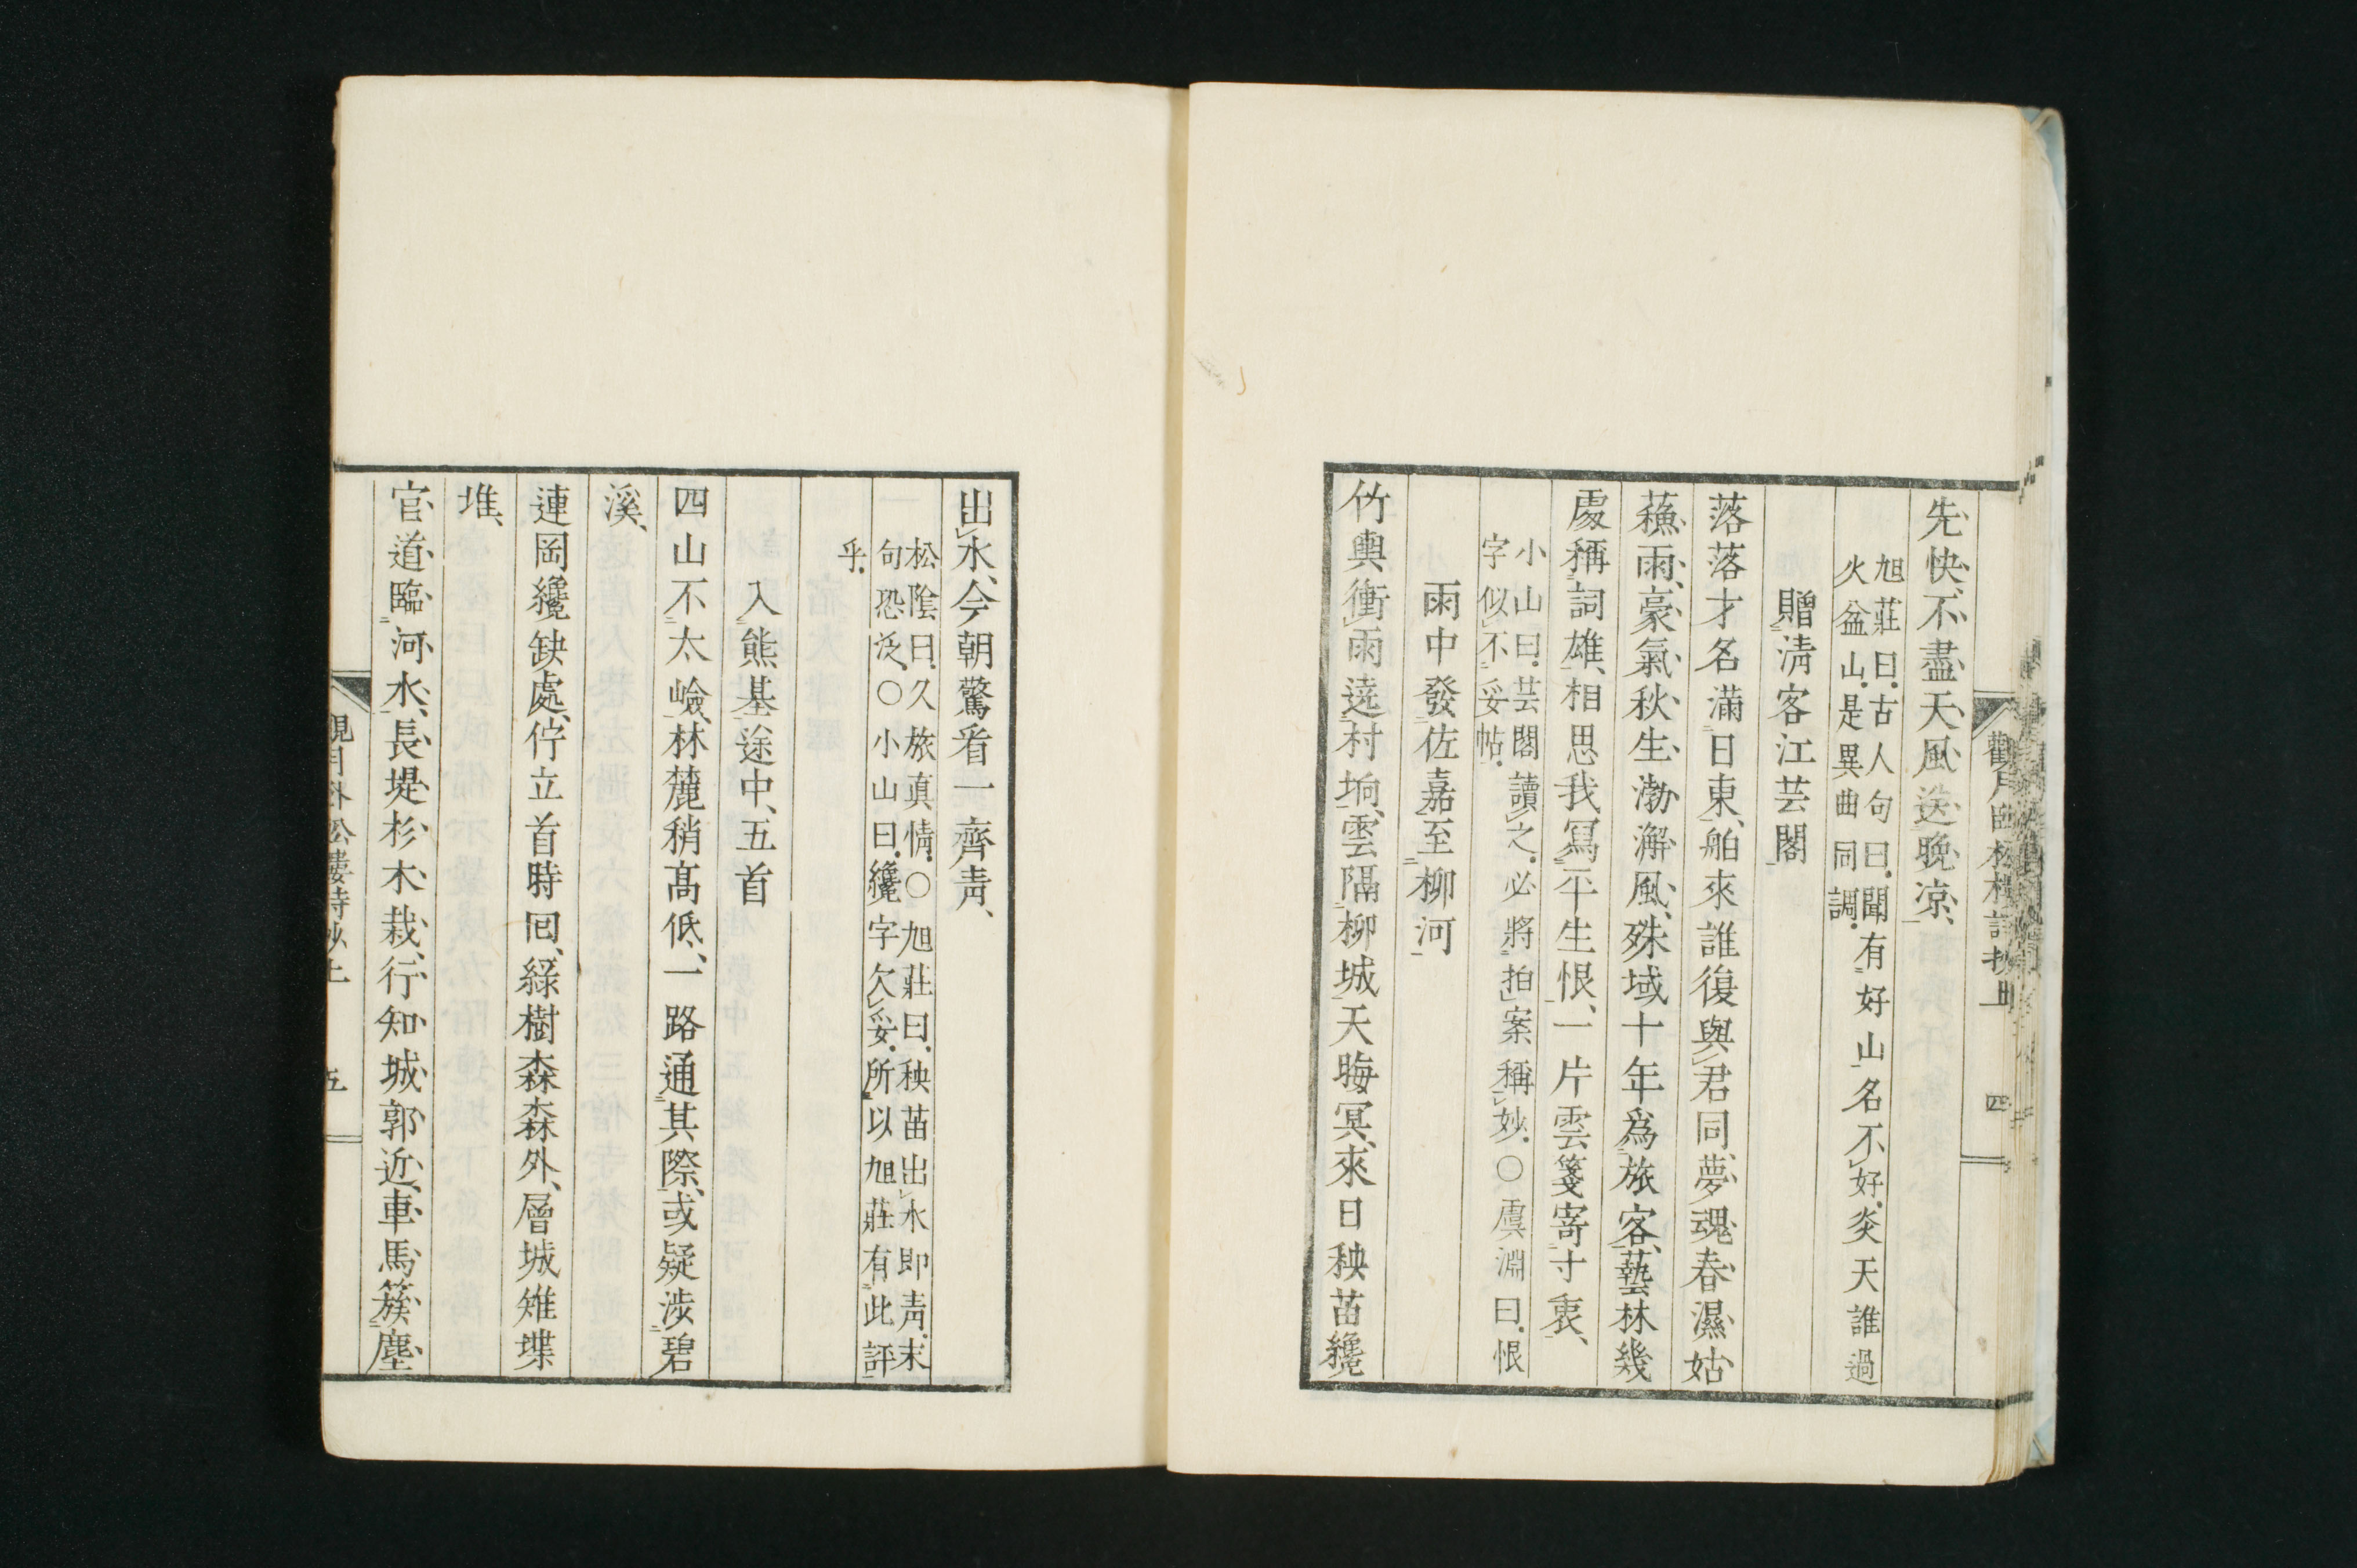 先快、不盡天風送晩凉、
旭莊曰.古人句曰.聞有好山名不好.炎天誰過
火益山.是異曲同調.
贈淸客江芸閣
落落才名滿日東、舶來誰復與君同、夢魂春濕姑
蘓雨、豪氣秋生渤澥風、殊域十年爲旅客、藝林幾
處稱詞雄、相思我寫平生恨、一片雲箋寄寸衷、
小山曰.芸閣讀之.必將拍案稱妙.○虞淵曰.恨
字似不妥帖.
雨中發佐嘉至柳河
竹輿衝雨遶村坰、雲隔柳城天晦冥、來日秧苗纔
觀月臥松樓詩抄上 四
出水、今朝驚看一齊靑、
松陰曰.久旅眞情.○旭莊曰.秧苗出水即靑.末
句恐泛.○小山曰.纔字欠妥.所以旭莊有此評
乎.
入熊基途中、五首
四山不太嶮、林麓稍高低、一路通其際、或疑涉碧
溪、
連岡纔缺處、佇立首時回、綠樹森森外、層城雉堞
堆、
官道臨河水、長堤杉木栽、行知城郭近、車馬簇塵
觀月臥松樓詩抄上 五